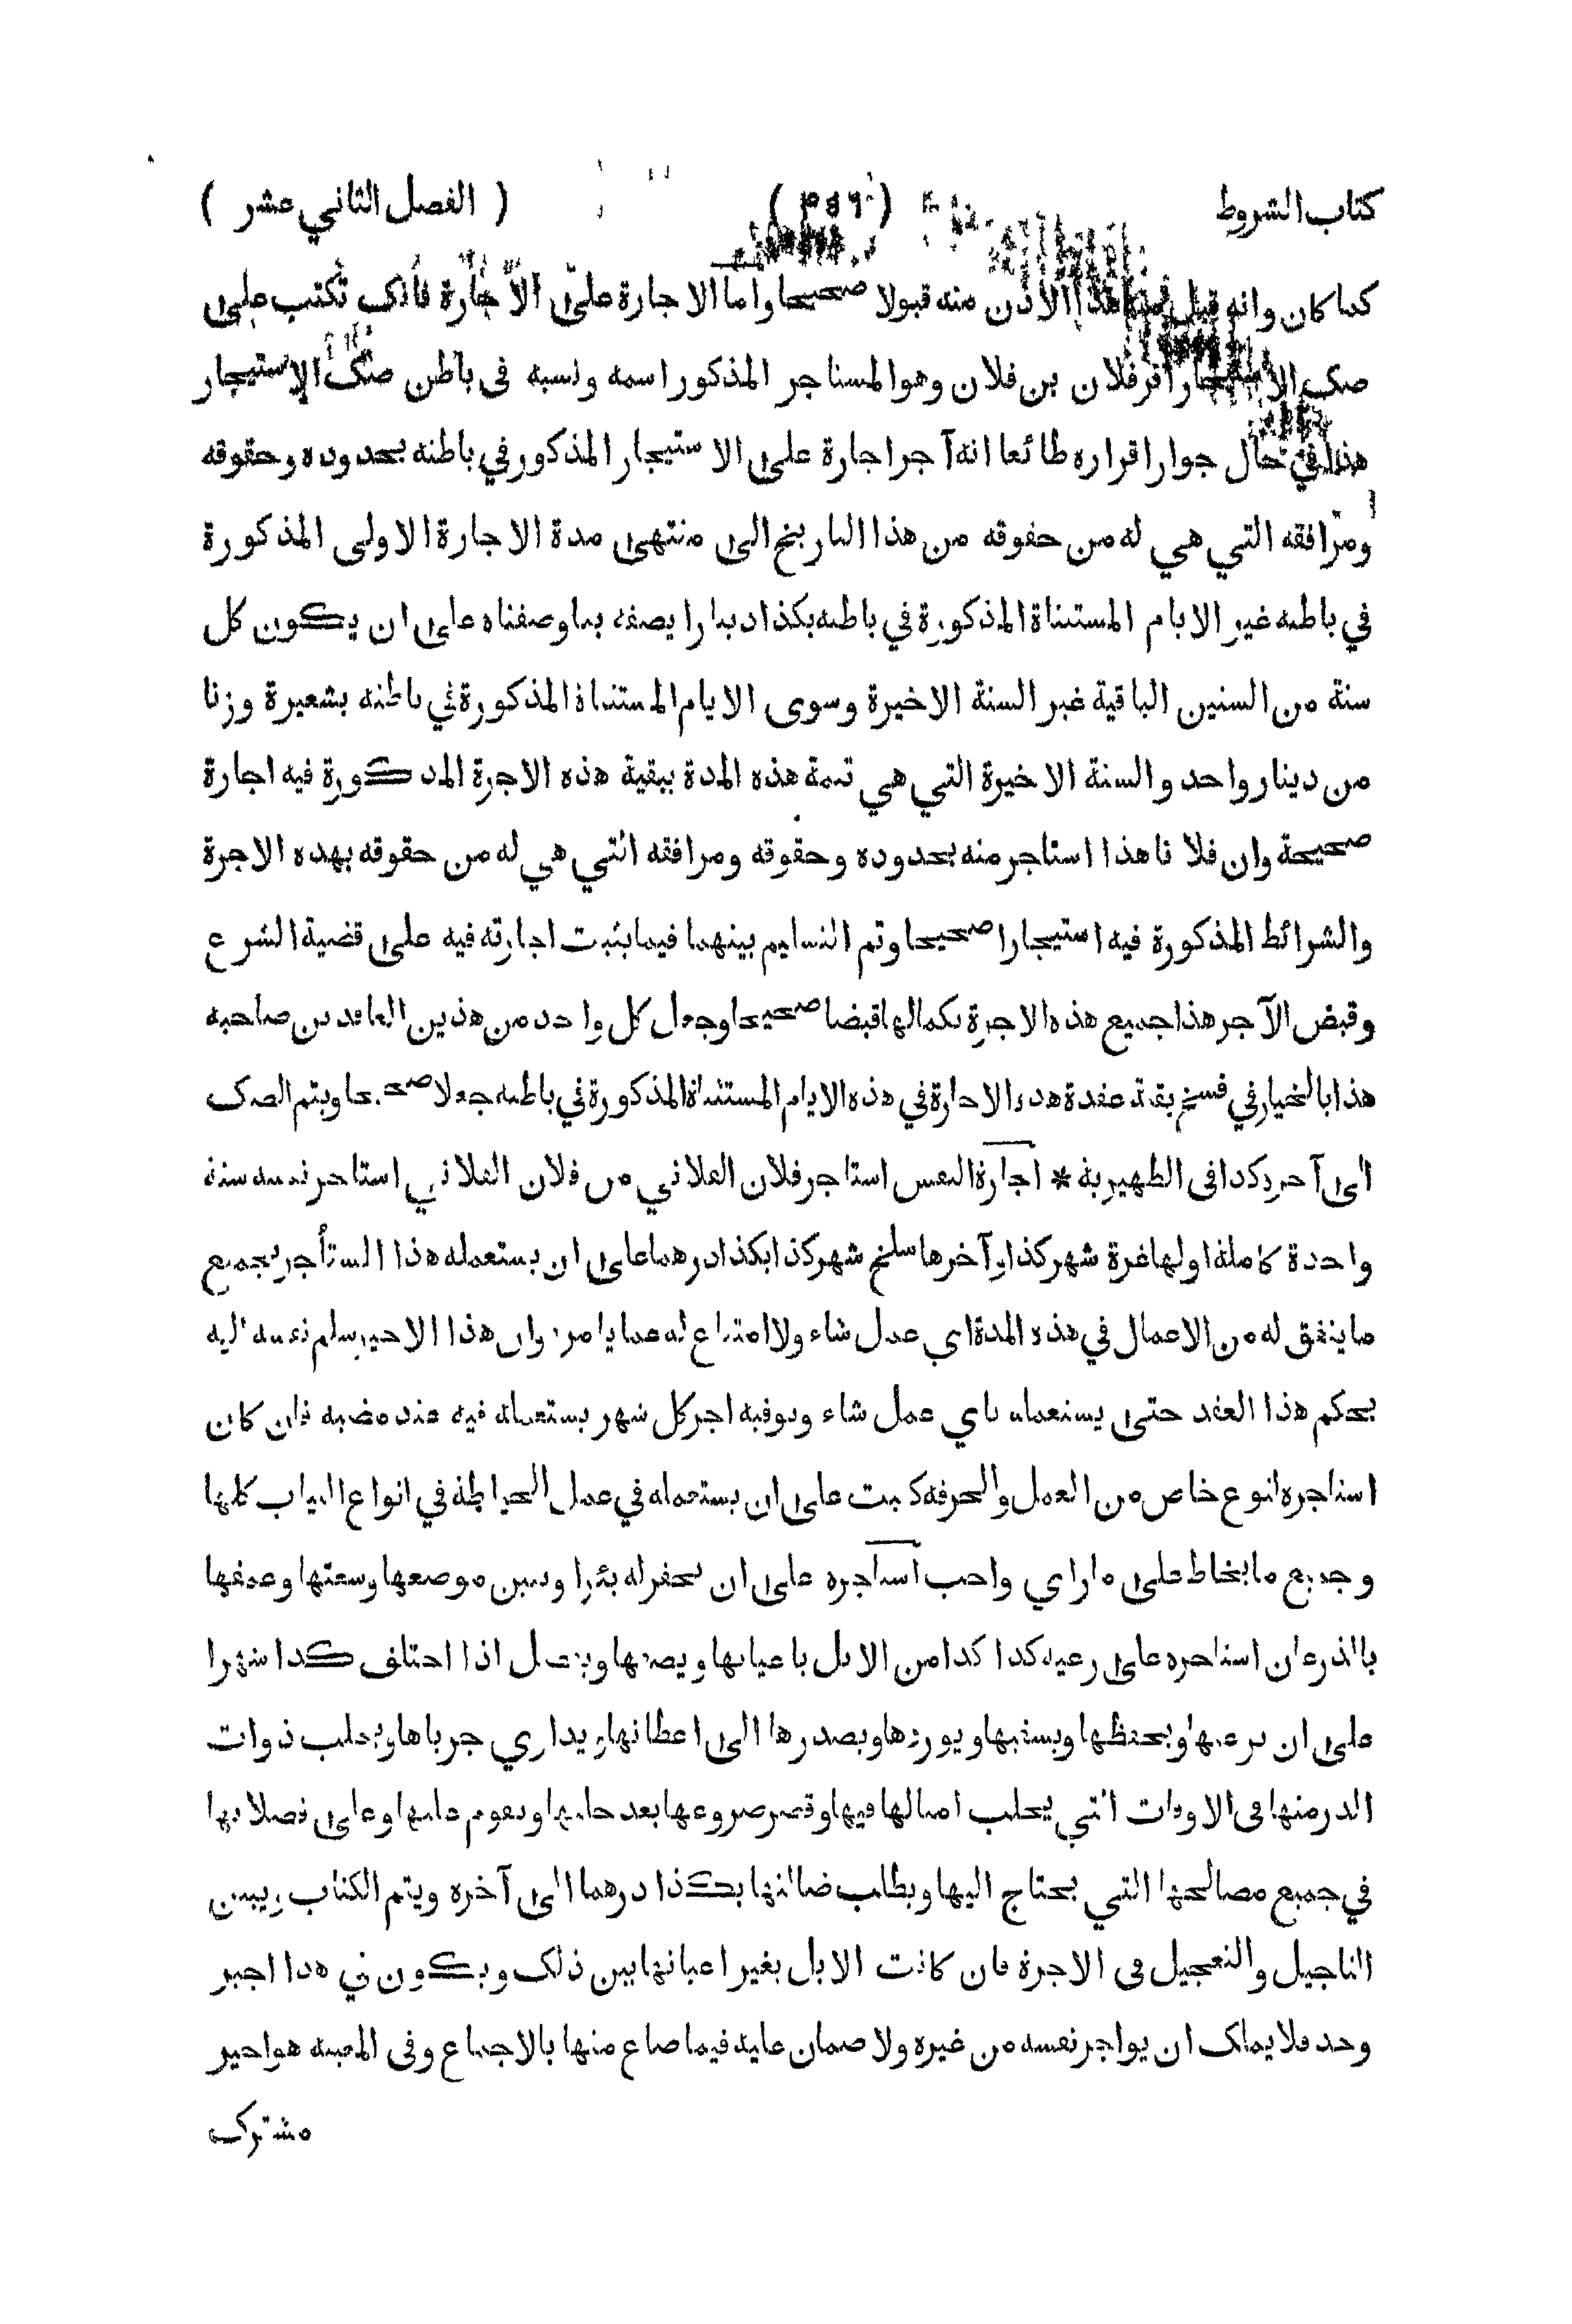 كتاب الشروط ( ٣٤٦ ) ( الفصل الثاني عشر )
كما كان وانه قبل منه هذا الاذن منه قبولا صحيحا واما الاجارة على الاجارة فانك تكتب على
صك الاستيجار اقر فلان بن فلان وهو المستاجر المذكور اسمه ونسبه في باطن صك الاستيجار
هذا في حال جواز اقراره طائعا انه آجر اجارة على الاستيجار المذكور في باطنه بحدوده وحقوقه
ومرافقه التي هي له من حقوقه من هذا التاريخ الى منتهى مدة الاجارة الاولى المذكورة
في باطنه غير الايام المستثناة المذكورة في باطنه بكذا دينارا يصفه بما وصفناه على ان يكون كل
سنة من السنين الباقية غير السنة الاخيرة وسوى الايام المستثناة المذكورة في باطنه بشعيرة وزنا
من دينار واحد والسنة الاخيرة التي هي تتمة هذه المدة ببقية هذه الاجرة المذكورة فيه اجارة
صحيحة وان فلانا هذا استاجر منه بحدوده وحقوقه ومرافقه التي هي له من حقوقه بهذه الاجرة
والشرائط المذكورة فيه استيجارا صحيحا وتم التسليم بينهما فيما يثبت اجارته فيه على قضية الشرع
وقبض الآجر هذا جميع هذه الاجرة بكمالها قبضا صحيحا وجعل كل واحد من هذين العاقدين صاحبه
هذا بالخيار في فسخ بقية عقدة هذه الاجارة في هذه الايام المستثناة المذكورة في باطنه جعلا صحيحا ويتم الصك
الى آخره كذا في الظهيرية * اجارة النفس استاجر فلان الفلاني من فلان الفلاني استاجر نفسه سنة
واحدة كاملة اولها غرة شهر كذا وآخرها سلخ شهر كذا بكذا درهما على ان يستعمله هذا المستأجر بجميع
ما يتفق له من الاعمال في هذه المدة اي عمل شاء ولا امتناع له عما يامره وان هذا الاجير سلم نفسه اليه
بحكم هذا العقد حتى يستعمله باي عمل شاء ويوفيه اجر كل شهر يستعمله فيه عند مضيه فان كان
استاجره لنوع خاص من العمل والحرفة كتبت على ان يستعمله في عمل الخياطة في انواع الثياب كلها
وجميع ما يخاط على ما راي واحب استاجره على ان يحفر له بئرا ويبين موضعها وسعتها وعمقها
بالذرعان استاجره على رعيه كذا كذا من الابل باعيانها ويصفها اذا اختلف كذا شهرا
على ان يرعيها ويحفظها ويسقيها ويوردها ويصدرها الى اعطانها ويداري جرباها ويحلب ذوات
الدر منها في الاوقات التي يحلب امثالها فيها ضروعها بعد حلبها ويقوم عليها وعلى فصلانها
في جميع مصالحها التي يحتاج اليها ويطلب ضالتها بكذا درهما الى آخره ويتم الكتاب ويبين
التاجيل والتعجيل في الاجرة فان كانت الابل بغير اعيانها بين ذلك ويكون في هذا اجير
وحد فلا يملك ان يواجر نفسه من غيره ولا ضمان عليه فيما ضاع منها بالاجماع وفي المعينة هو اجير
مشترك